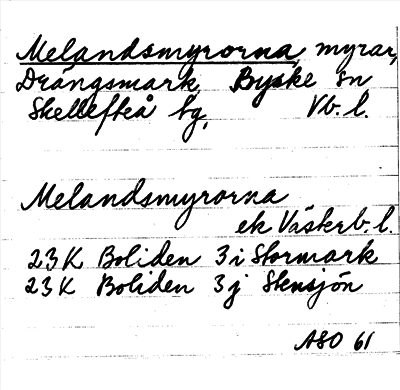 Melandsmyrorna, myrar,
Drängsmark, Byske sn
Skellefteå tg, Vb. l.
Melandsmyrorna
ek Västerb. l.
23K Boliden 3i Stormark
23K Boliden 3j Stensjön
ASO 61